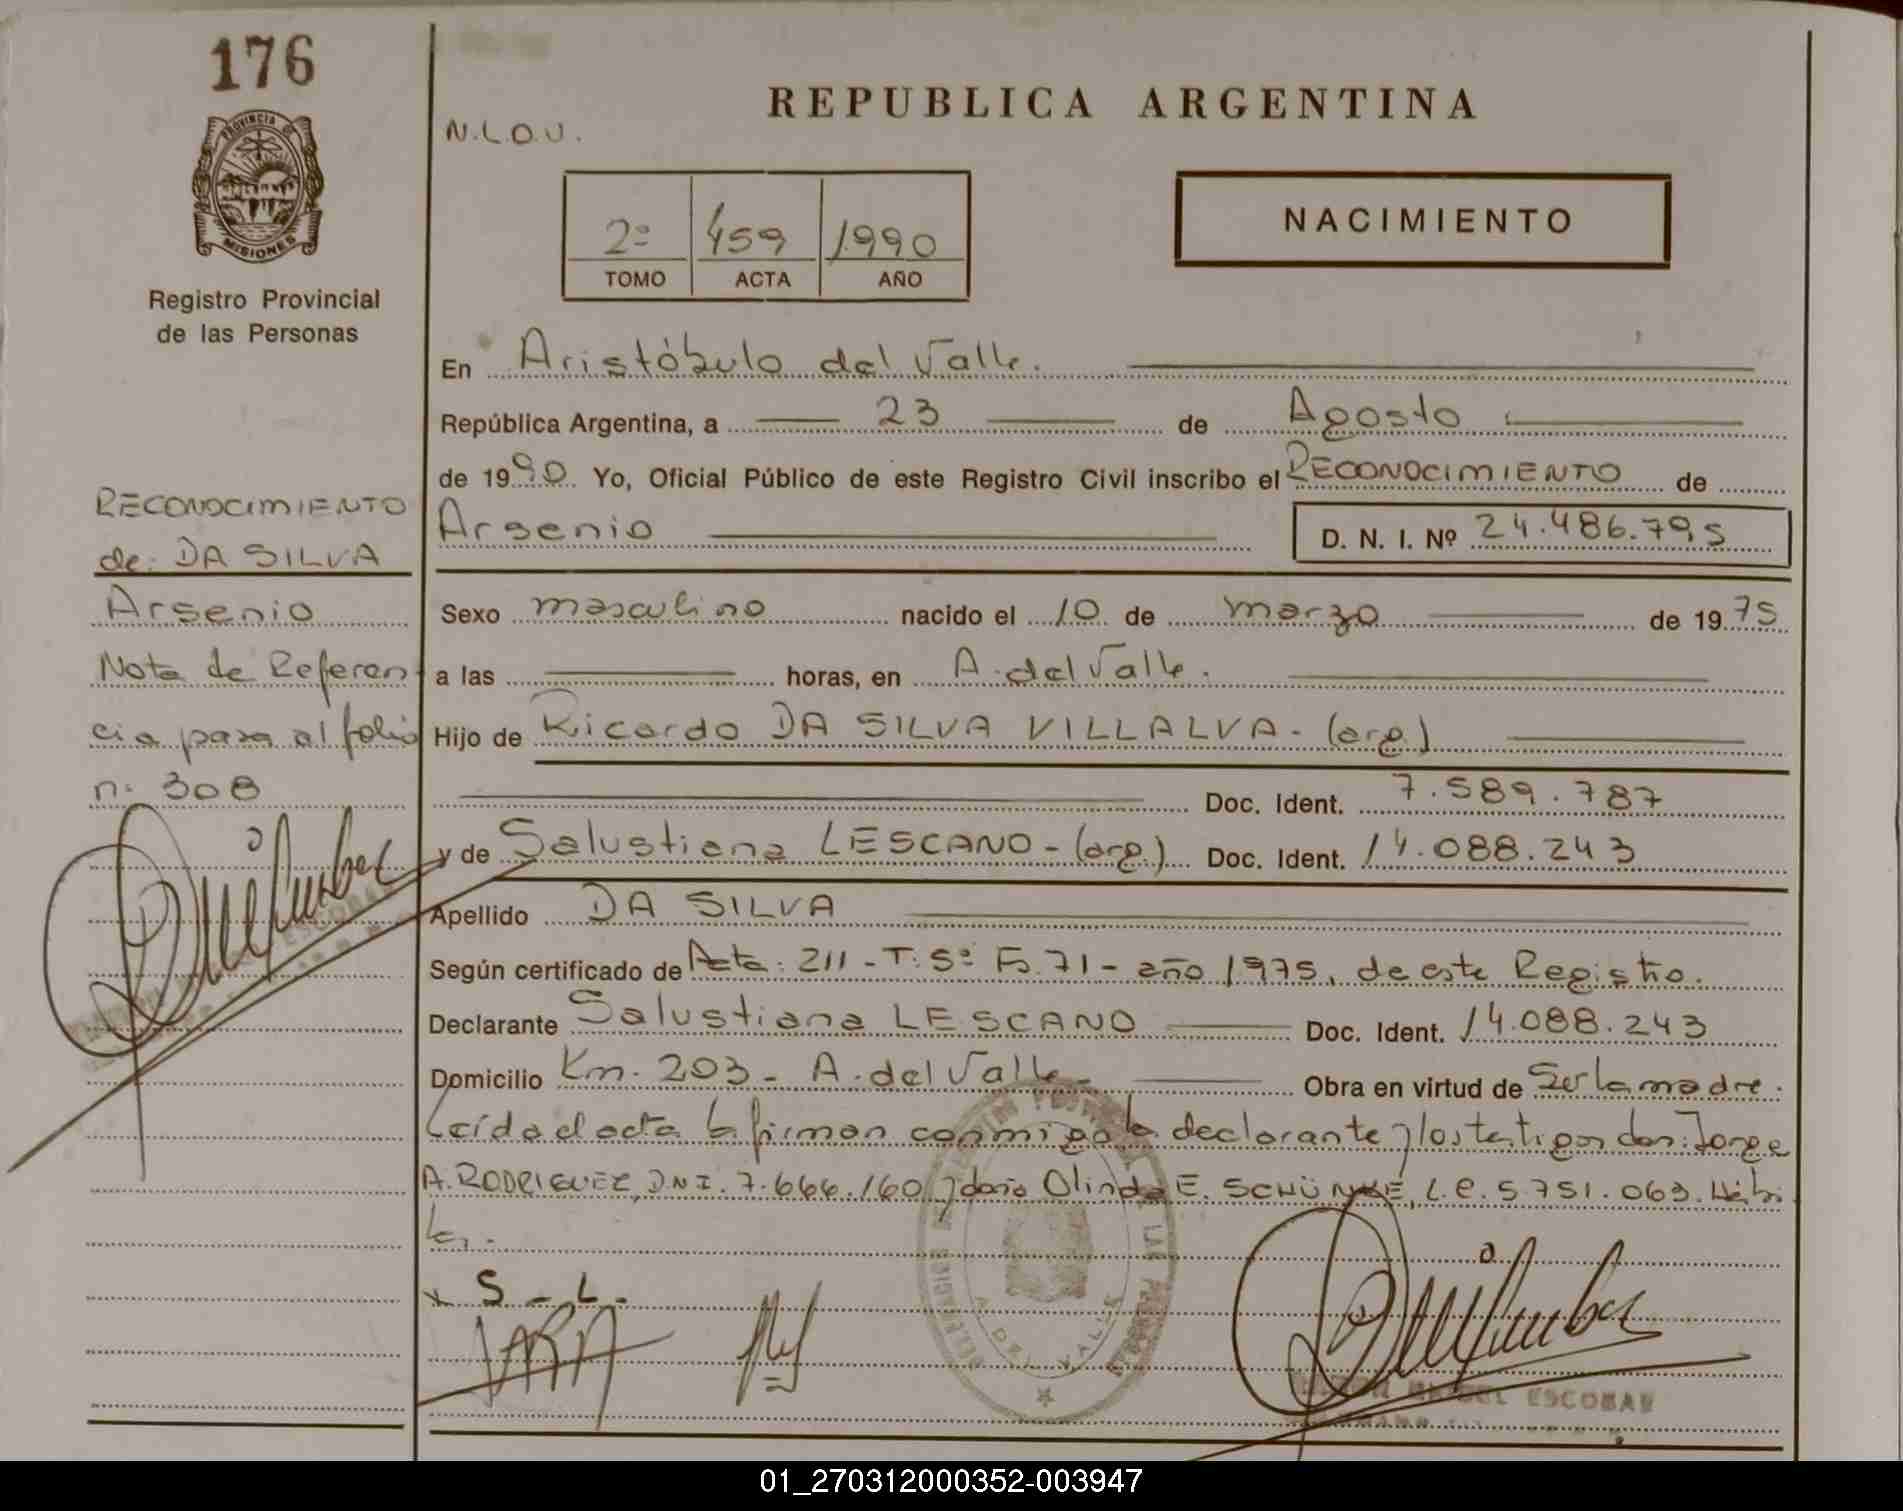 176
PROVINCIA DE
MISIONES
Registro Provincial
de las Personas
RECONOCIMIENTO
de: DA SILVA
Arsenio
Nota de Referen
cia pasa al folio
n: 308
REPUBLICA ARGENTINA
N.L.O.U.
2º 459 1990
TOMO ACTA AÑO
NACIMIENTO
En Aristóbulo del Valle.
República Argentina, a 23 de Agosto
de 1990. Yo, Oficial Público de este Registro Civil inscribo el RECONOCIMIENTO de
Arsenio D. N. I. Nº 24.486.795
Sexo masculino nacido el 10 de marzo de 1975
a las horas, en A. del Valle.
Hijo de Ricardo DA SILVA VILLALVA. (arg.)
Doc. Ident. 7.589.787
y de Salustiana LESCANO - (arg.) Doc. Ident. 14.088.243
Apellido DA SILVA
Según certificado de Acta: 211 - T: 5º Fo. 71 - año 1975, de este Registro.
Declarante Salustiana LESCANO Doc. Ident. 14.088.243
Domicilio Km. 203 - A. del Valle - Obra en virtud de Ser la madre.
Leída el acta la firman conmigo la declarante y los testigos don: Jorge
A. RODRIGUEZ, D.N.I. 7.646.160 y doña Olinda E. SCHÜNKE, L.C. 5.751.063. Hábi
les.
x S - L.
A. DEL VALLE
ESCOBAR
MIGUEL ESCOBAR
01_270312000352-003947